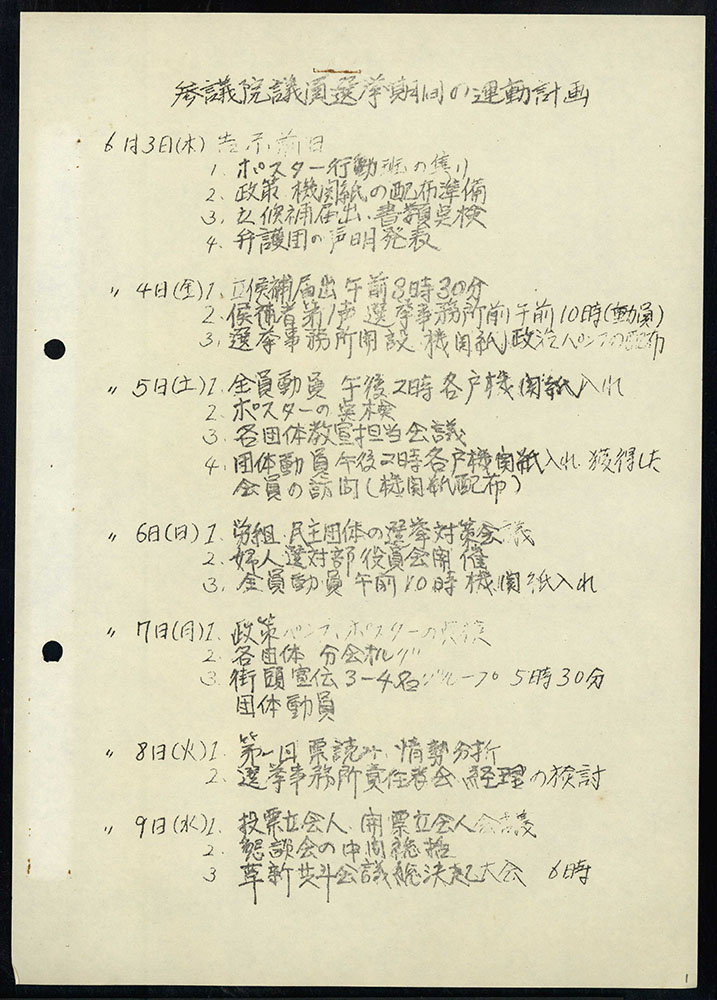 参議院議員選挙期間の運動計画
6月3日(木) 告示前日
1. ポスター行動班の集り
2. 政策 機関紙の配布準備
3. 立候補届出、書類点検
4. 弁護団の声明発表
〃 4日(金) 1. 立候補届出 午前8時30分
2. 候補者第1声 選挙事務所前 午前10時(動員)
3. 選挙事務所開設、機関紙、政治パンフの配布
〃 5日(土) 1. 全員動員 午後2時 各戸機関紙入れ
2. ポスターの点検
3. 各団体教宣担当会議
4. 団体動員 午後2時各戸機関紙入れ、獲得した
会員の訪問(機関紙配布)
〃 6日(日) 1. 労組、民主団体の選挙対策会議
2. 婦人選対部 役員会開催
3. 全員動員 午前10時 機関紙入れ
〃 7日(月) 1. 政策パンフ、ポスターの
2. 各団体 分会オルグ
3. 街頭宣伝 3-4名グループ 5時30分
団体動員
〃 8日(火) 1. 第一回 票読み、情勢分析
2. 選挙事務所責任者会、経理の検討
〃 9日(水) 1. 投票立会人、開票立会人会議
2. 懇談会の中間総括
3 革新共斗会議総決起大会 6時
1